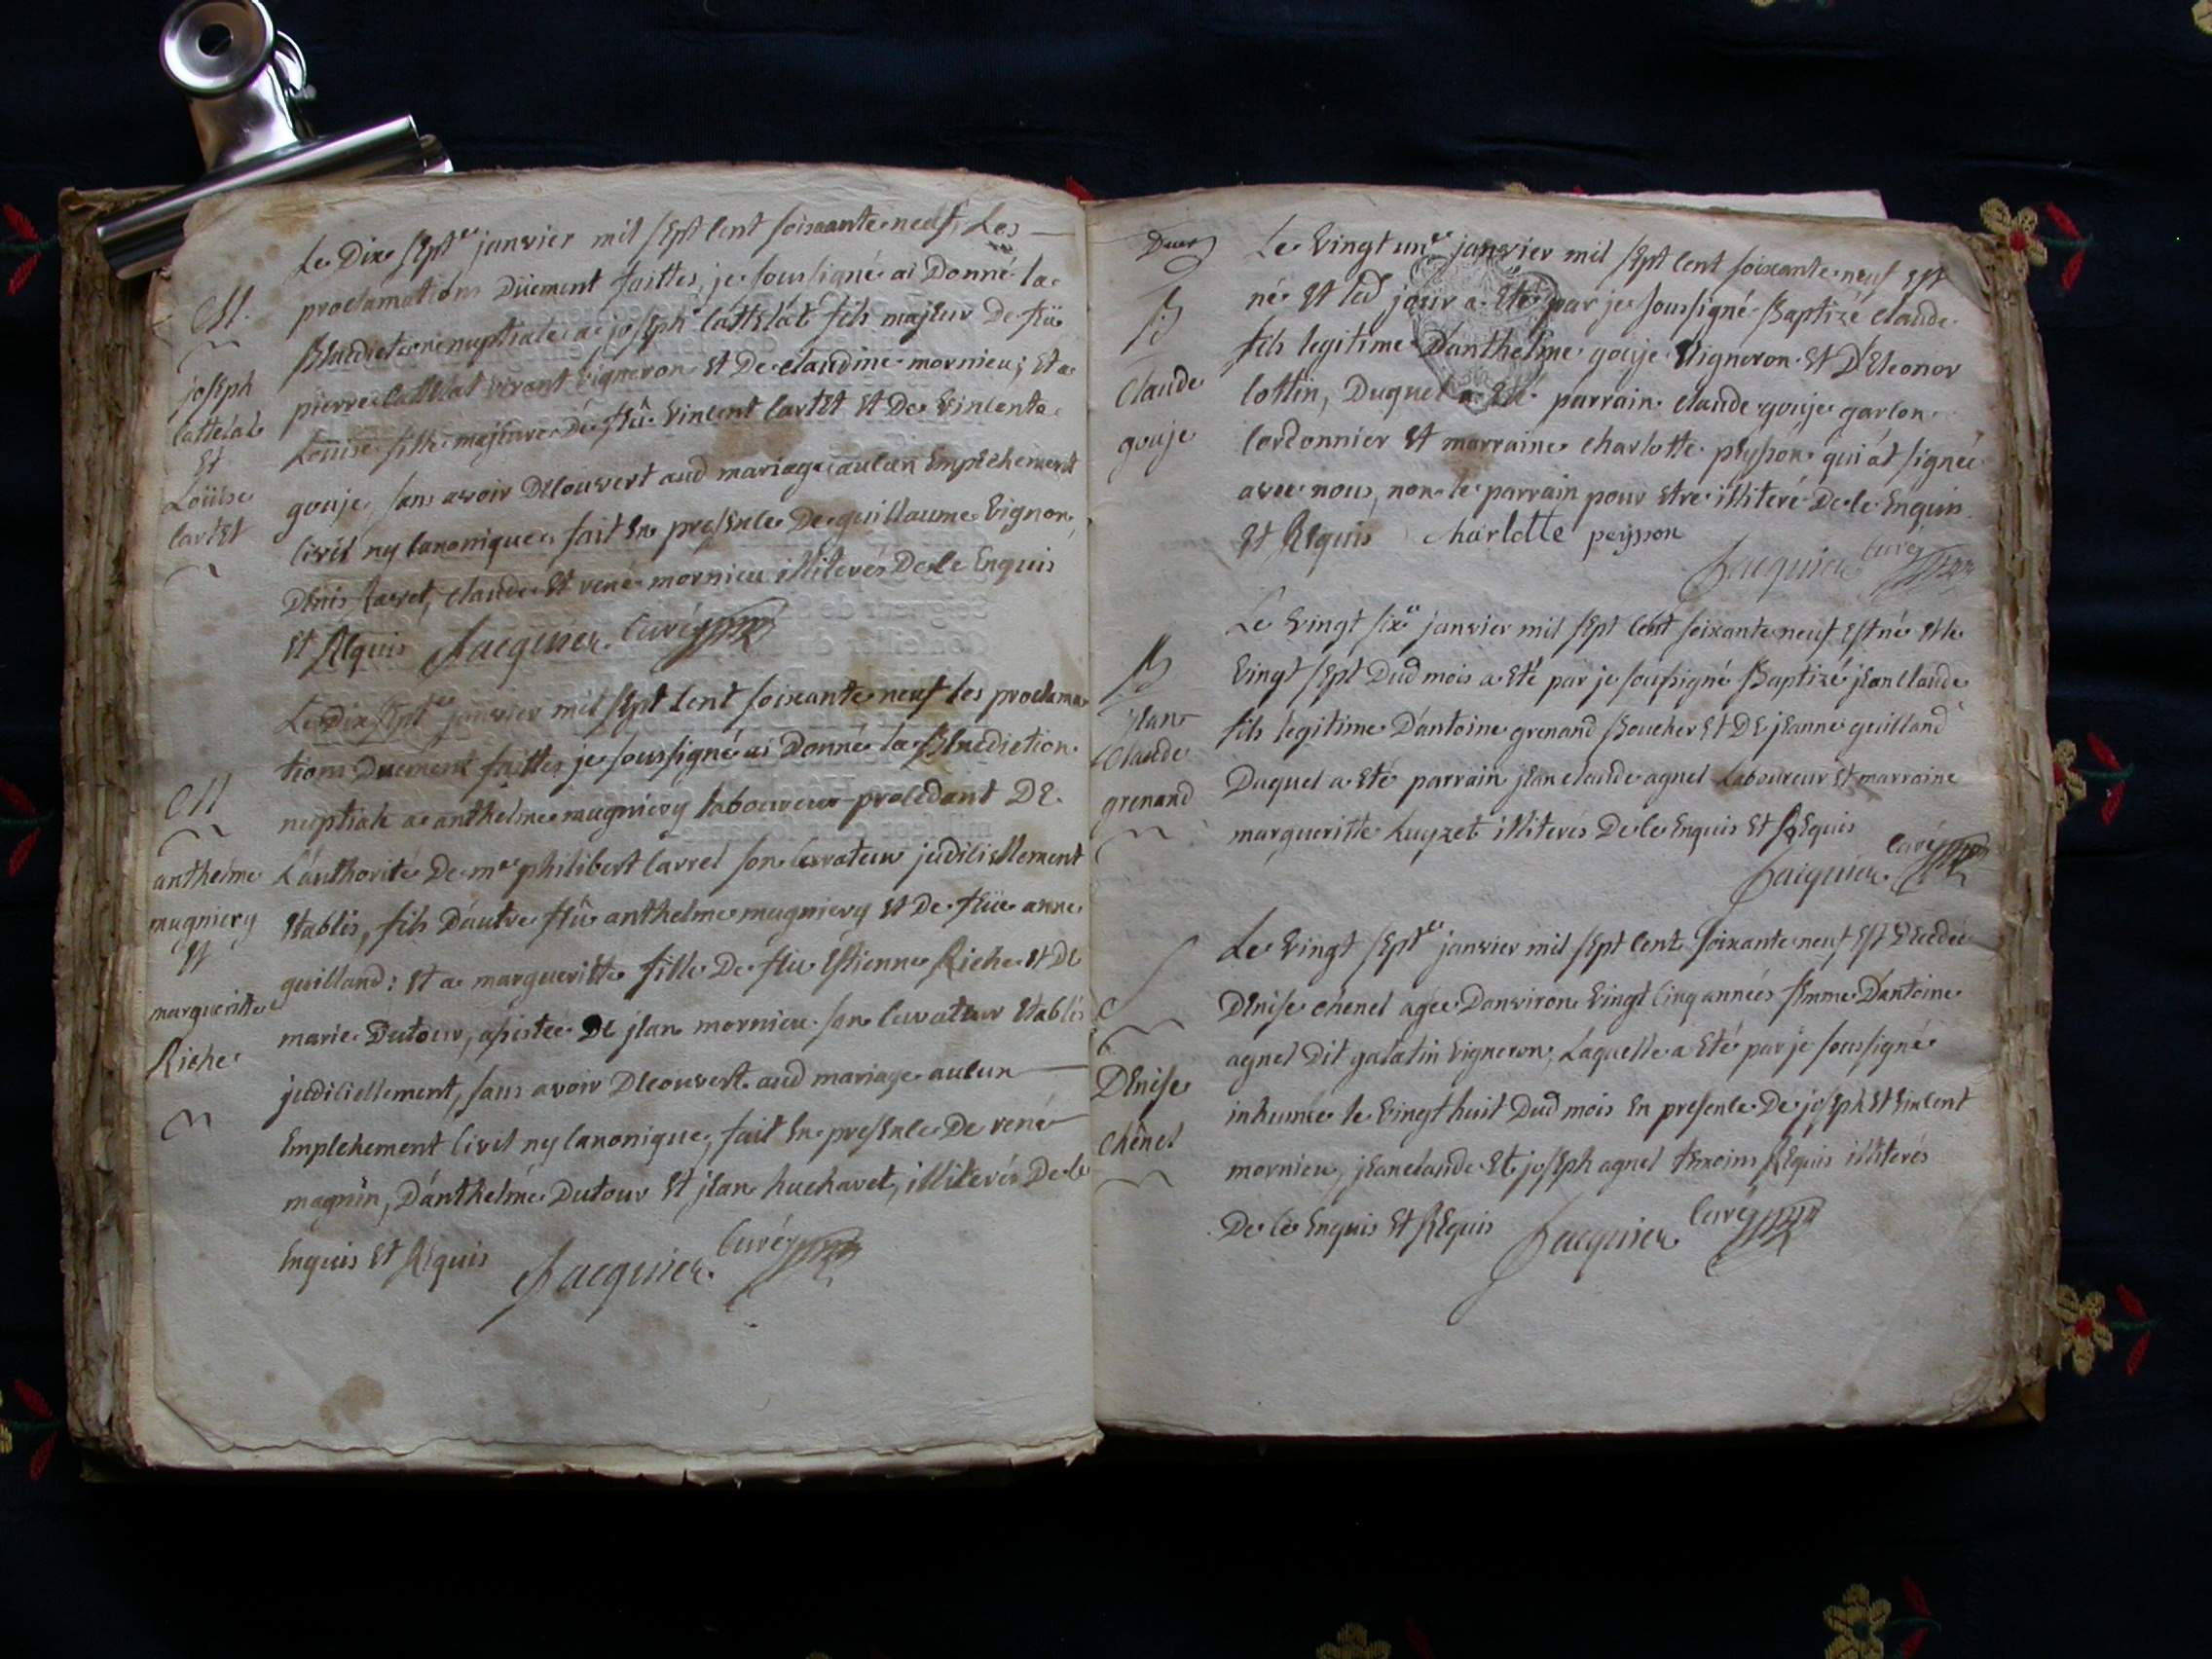 M.
joseph
cattelat
et
Loüise
cartet
Le Dix sept.e janvier mil sept cent soixante neuf, Les
proclamations Düement faittes, je soussigné ai Donné la
Benediction nuptiale a joseph cattelat fils majeur De fû
pierre cattelat vivant vigneron et De claudine mornieu; et a
Loüise fille majeure De fû vincent cartet et De vincente
gouje, sans avoir Decouvert aud mariage aucun Empechement
civil ny canonique; fait En presence De guillaume vignon,
Denis claude et rené mornieu illiterés De ce Enquis
et Requis Jacquier Curé
M
anthelme
mugniery
et
margueritte
Riche
Le Dix sept.e janvier mil sept cent soixante neuf les proclama
tions Duement faittes je soussigné ai Donné la Benediction
nuptiale a anthelme mugniery laboureur procedant De
L'authorité De m.e philibert carrel son curateur judiciellement
Etablis, fils D'autre fû anthelme mugniery et De füe anne
guilland: et a margueritte fille De feu Estienne Riche et De
marie Dutour, assistee De jean mornieu son curateur Etablis
judiciellement, sans avoir Decouvert aud mariage aucun
Empechement civil ny canonique, fait En presence De rené
magnin, D'anthelme Dutour et jean huchavet, illiterés De ce
Enquis et Requis Jacquier Curé
B
claude
gouje
Le vingt un.e janvier mil sept cent soixante neuf est
né et led jour a eté par je soussigné Baptizé claude
fils legitime D'anthelme gouje vigneron et D'Eleonor
cottin, Duquel a eté parrain claude gouje garcon
cordonnier et marraine charlotte peysson qui at signée
avec nous, non le parrain pour etre illiteré De ce Enquis
et Requis charlotte peysson
Jacquier Curé
B
jean
claude
grenand
Le vingt six.e janvier mil sept cent soixante neuf est né et le
vingt sept Dud mois a eté par je soussigné Baptizé jean claude
fils legitime D'antoine grenand Boucher et De jeanne guilland
Duquel a eté parrain jean claude agnel Laboureur et marraine
margueritte Luyzet illiterés De ce Enquis et Requis
Jacquier Curé
Denise
chenel
Le vingt sept.e janvier mil sept cent soixante neuf est Decedée
Denise chenel agée D'environ vingt cinq années femme D'antoine
agnel Dit galatin vigneron, Laquelle a eté par je soussigné
inhumée le vingt huit Dud mois En presence De joseph et vincent
mornieu, jean claude et joseph agnel temoins Requis illiterés
De ce Enquis et Requis Jacquier Curé